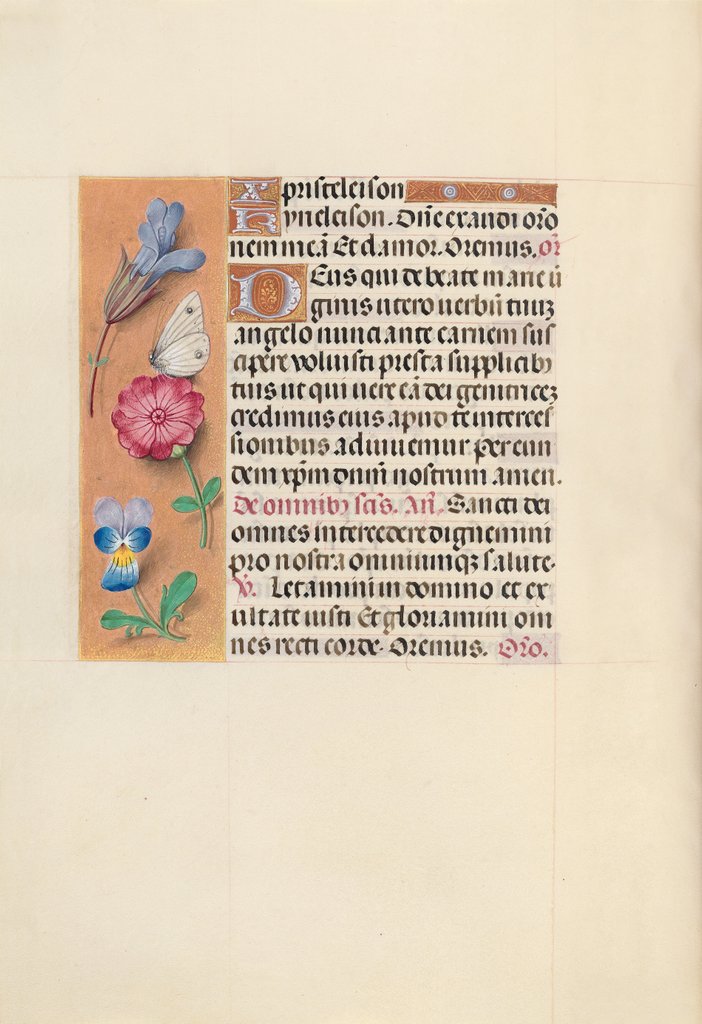 Xpristeleison
Kyrieleison. Dn̄e exaudi oro
nem meā Et clamor. Oremus. or̄
Deus qui de beate marie ū
ginis utero uerbū tuuȝ
angelo nunciante carnem sus
cipere voluisti presta supplicibȝ
tuis ut qui uere eā dei genitriceȝ
credimus eius apud te interces
sionibus adiuuemur per eun
dem xp̄m dnm̄ nostrum amen.
De omnibȝ scīs. Añ. Sancti dei
omnes intercedere dignemini
pro nostra omniumqȝ salute.
℣. Letamini in domino et ex
ultate iusti Et gloriamini om
nes recti corde. Oremus. Oro.